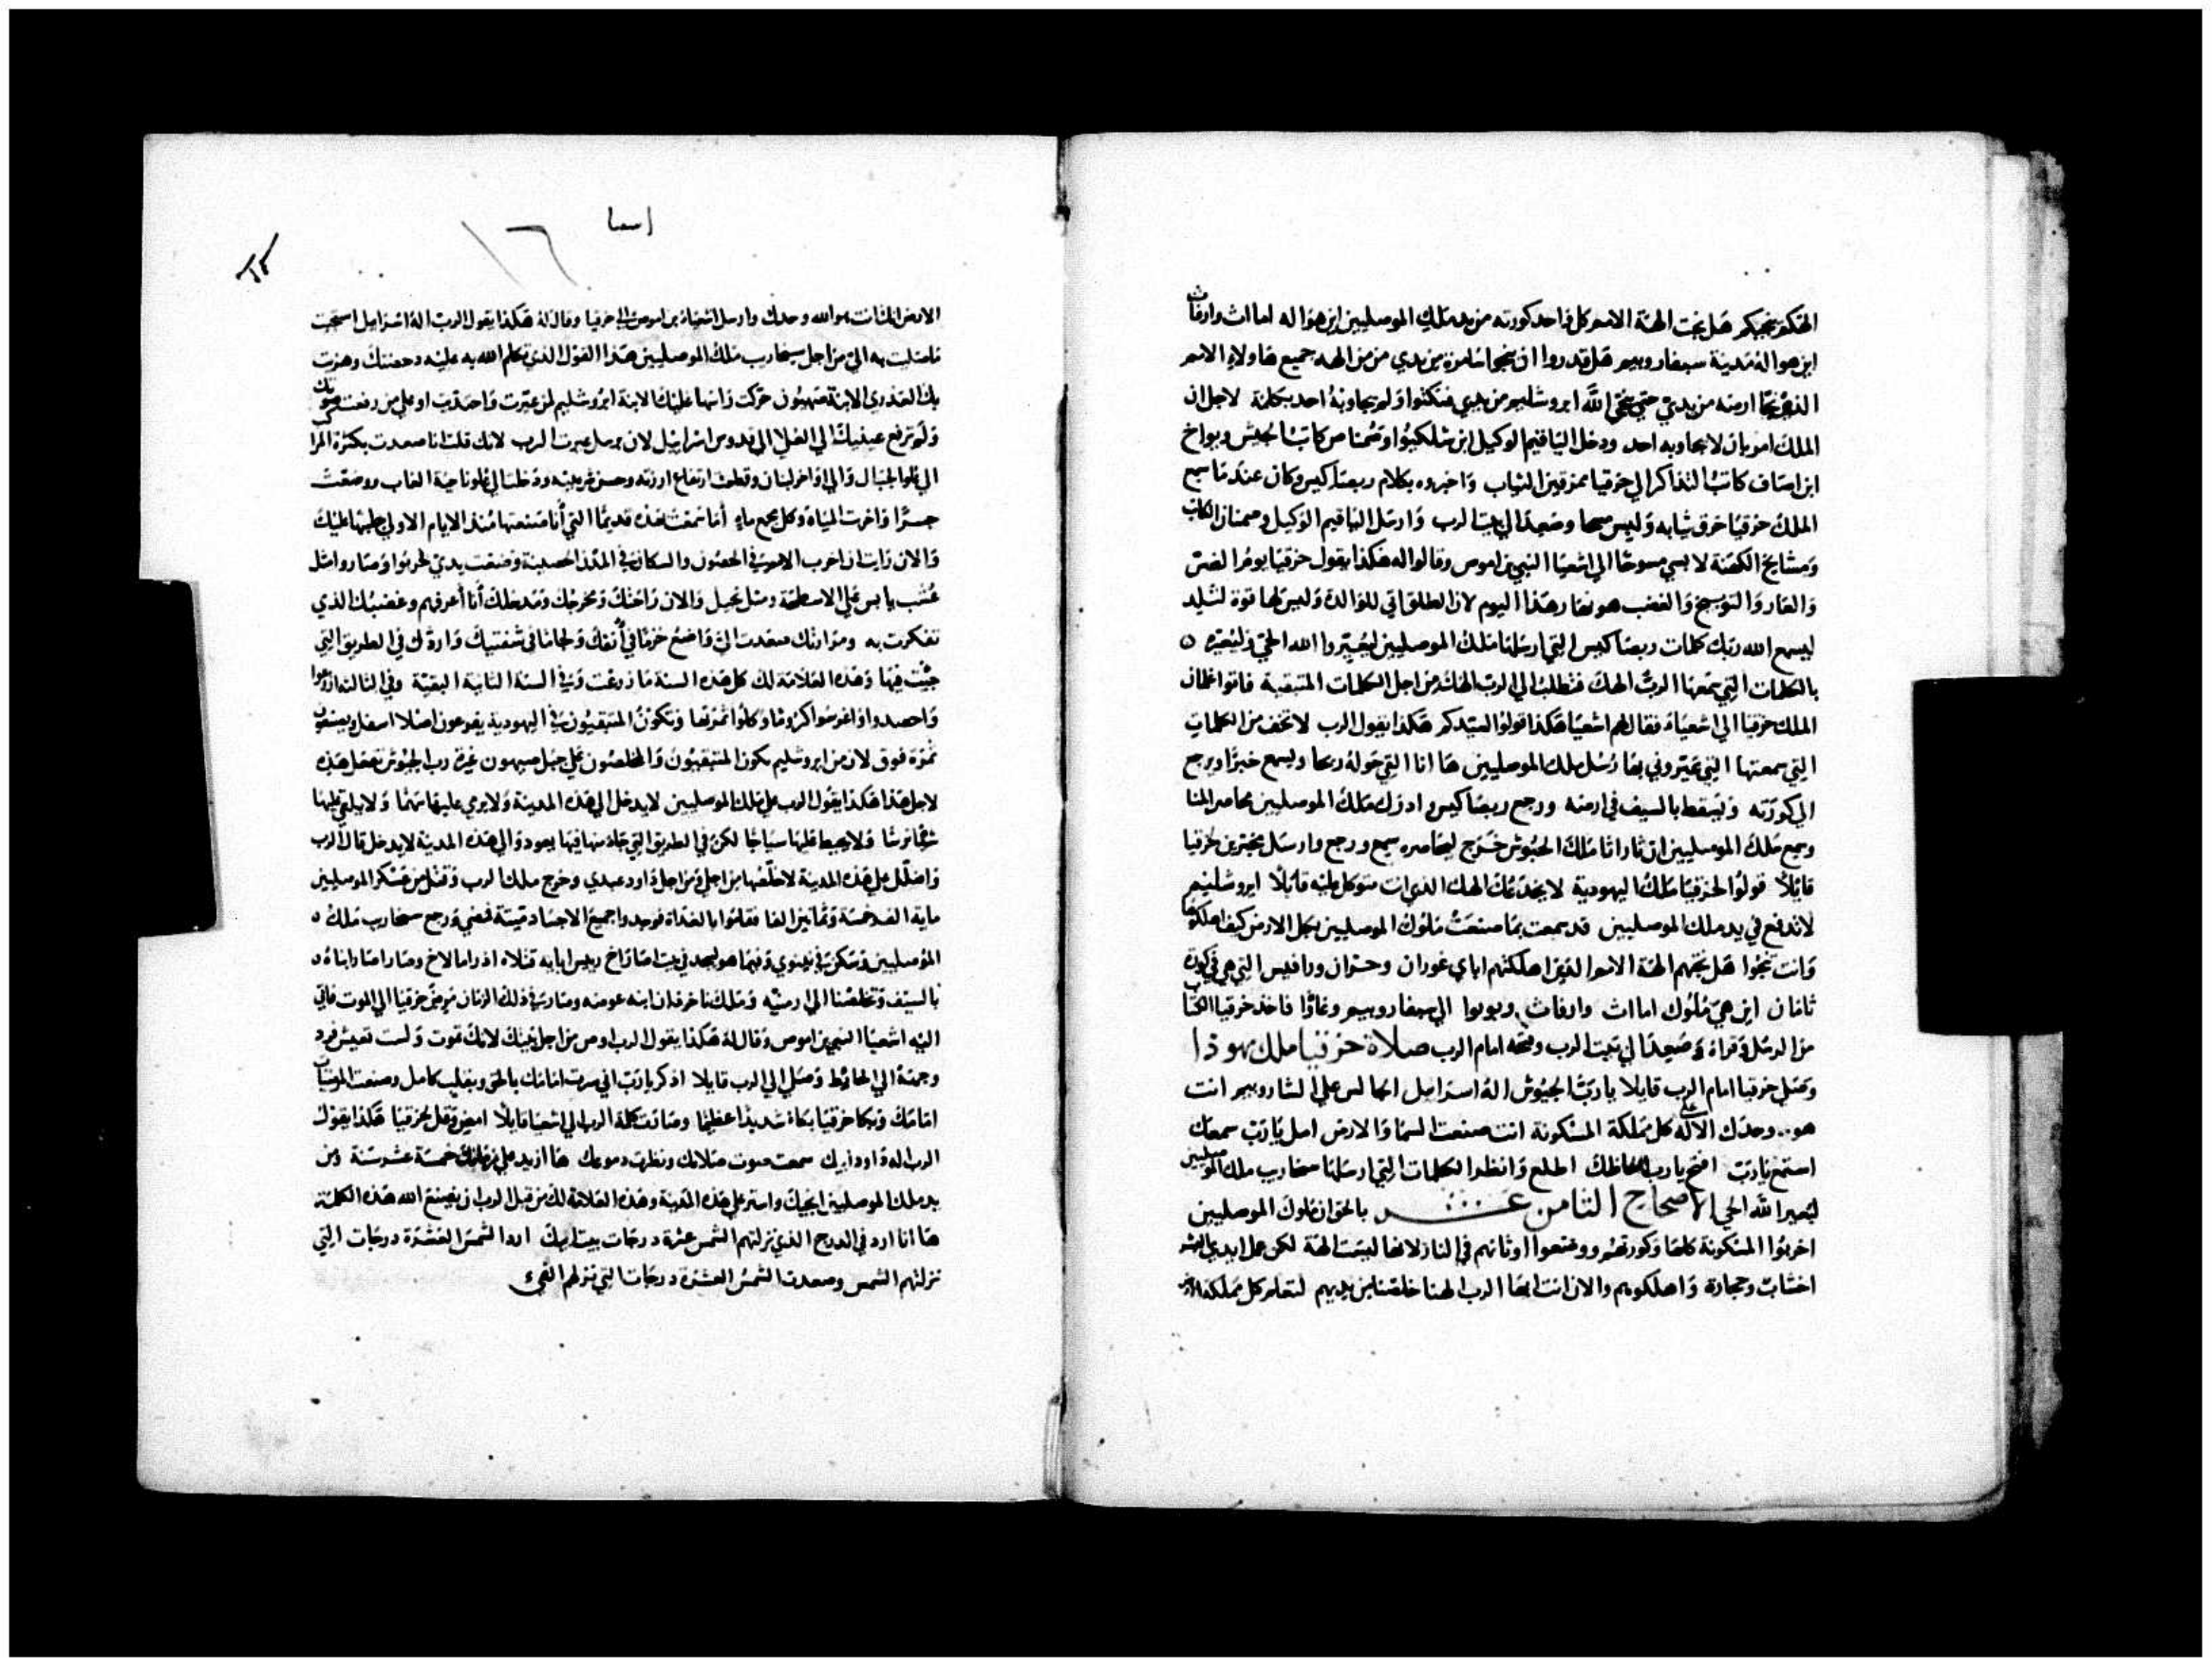 الهكم ينجيكم هل نجت الهة الامم كل واحد كورته من يد ملك الموصليين اين هو اله اماث وارفاث
اين هو اله مدينة سبفاروييم هل قدروا ان ينجوا سامرة من يدي من من الهه جميع هاولاء الامم
الذي نجا ارضه من يدي حتي ينجي الله ايروشليم من يدي فسكتوا ولم يجاوبه احد بكلمة لاجل ان
الملك امر بان لا يجاوبه احد ودخل الياقيم الوكيل ابن شلكيوا وصمنا كاتب الجيش ويواخ
ابن اصاف كاتب التذاكر الي حزقيا ممزقين الثياب واخبروه بكلام ربصاكيس وكان عندما سمع
الملك حزقيا خرق ثيابه ولبس مسحا وصعد الي بيت الرب وارسل الياقيم الوكيل وصمنا الكاتب
ومشايخ الكهنة لابسي مسوحا الي اشعيا النبي بن اموص وقالوا له هكذا يقول حزقيا يوم الضيق
والعار والتوبيخ والغضب هو نهار هذا اليوم لان الطلق اتي للوالدة وليس لها قوة لتلد
ليسمع الله ربك كلمات ربصاكيس التي ارسلها ملك الموصليين ليعيروا الله الحي وليعيره
بالكلمات التي سمعها الرب الهك فتطلب الي الرب الهك من اجل الكلمات المتبقية فاتوا غلمان
الملك حزقيا الي اشعياء فقال لهم اشعيا هكذا قولوا لسيدكم هكذا يقول الرب لا تخف من الكلمات
التي سمعتها التي عيروني بها رسل ملك الموصليين ها انا التي حوله ريحا ويسمع خبرا ويرجع
الي كورته ويسقط بالسيف في ارضه ورجع ربصاكيس وادرك ملك الموصليين محاصر المنا
وسمع ملك الموصليين ان ثاراثا ملك الحبوش خرج ليحاصره سمع ورجع وارسل مخبرين لحزقيا
قايلا قولوا لحزقيا ملك اليهودية لا يخدعك الهك الذي انت متوكل عليه قايلا ايروشليم
لا تدفع في يد ملك الموصليين قد سمعت بما صنعت ملوك الموصليين بكل الارض كيف اهلكوها
وانت تنجوا هل نجتهم الهة الامم الذين اهلكتهم اباي غوزان وحران ورافيس التي هي في كورة
ثامان اين هي ملوك اماث وارفاث الي سبفاروييم وغاوا فاخذ حزقيا الكتاب
من الرسل وقراه وصعد الي بيت الرب وفتحه امام الرب صلاة حزقيا ملك يهوذا
وصلي حزقيا امام الرب قايلا يا رب الجيوش اله اسرايل الجالس علي الشاروبيم انت
هو وحدك الاله علي كل مملكة المسكونة انت صنعت السما والارض امل يا رب سمعك
استمع يا رب افتح يا رب الحاظك اطلع وانظر الكلمات التي ارسلها سخاريب ملك الموصليين
ليعير الله الحي الاصحاح الثامن عشر بالحق ان ملوك الموصليين
اخربوا المسكونة كلها وكورتهم ووضعوا اوثانهم في النار لانها ليست الهة لكن عمل ايدي البشر
اخشاب وحجارة واهلكوهم والان انت ايها الرب الهنا خلصنا من يديهم لتعلم كل مملكة الارض
اسعيا
الارض انك انت هو الله وحدك وارسل اشعياء بن اموص الي حزقيا وقال له هكذا يقول الرب اله اسرايل استجبت
ما صليت به الي من اجل سخاريب ملك الموصليين هذا القول الذي تكلم الله به عليه دحضتك وهزت
بك العذري الابنة صهيون حركت راسها عليك الابنة ايروشليم لمن عيرت واحتديت او علي من رفعت صوتك
ولم ترفع عينيك الي العلا الي قدوس اسرايل لان برسل عيرت الرب لانك قلت انا صعدت بكثرة المرا
الي علو الجبال والي اواخر لبنان وقطعت ارتفاع ارزته وحسن شربينه ودخلت الي علو ناحية الغاب ووضعت
جسرا واخربت المياه وكل مجمع ماء أما سمعت هذه قديما التي أنا صنعتها منذ الايام الاولي جلبتها عليك
والان رايت ان اخرب الامم في الحصون والسكان في المدن الحصينة وضعفت يدي لحربوا وصاروا مثل
عشب يابس علي الاسطحة ومثل نجيل والان راحتك ومخرجك ومدخلك أنا أعرفهم وغضبك الذي
تفكرت به ومرارتك صعدت الي واضع خزما في أنفك ولجاما في شفتيك واردك في الطريق التي
جيت فيها وهذه العلامة لك كل هذه السنة ما زرعت وفي السنة الثانية البقية وفي الثالثة ازرعوا
واحصدوا واغرسوا كروما وكلوا ثمرتها وتكون المتبقيون في اليهودية يفرعون اصلا اسفل ويصنعون
ثمرة فوق لان من ايروشليم يكون المتبقيون والمخلصون علي جبل صهيون غيرة رب الجيوش تفعل هذه
لاجل هذا هكذا يقول الرب علي ملك الموصليين لا يدخل الي هذه المدينة ولا يرمي عليها سهما ولا يلقي عليها
ترسا ولا يحيط عليها سياجا لكن في الطريق التي جاء منها فيها يعود والي هذه المدينة لا يدخل قال الرب
واظلل علي هذه المدينة لاخلصها من اجلي ومن اجل داود عبدي وخرج ملك الرب وقتل من عسكر الموصليين
ماية الف خمسة وثمانين الفا فقاموا بالغداة فوجدوا جميع الاجساد ميتة فمضي ورجع سخاريب ملك
الموصليين وسكن في نينوي وفيما هو يسجد في بيت اصاراخ ريس ابايه قتلاه ادراملاخ وصاراصار ابناه
بالسيف وتخلصا الي ارمنيه وملك ناخردان ابنه عوضه وصار في ذلك الزمان مرض حزقيا الي الموت فاتي
اليه اشعيا النبي بن اموص وقال له هكذا يقول الرب اوص من اجل بيتك لانك تموت ولست تعيش فرد
وجهه الي الحايط وصلي الي الرب قايلا اذكر يا رب اني سرت امامك بالحق وبقلب كامل وصنعت المرضيات
امامك وبكا حزقيا بكاء شديدا عظيما وصارت كلمة الرب الي اشعيا قايلا امض وقل لحزقيا هكذا يقول
الرب اله داود ابيك سمعت صوت صلاتك ونظرت دموعك ها ازيد علي زمانك خمسة عشر سنة ومن
يد ملك الموصليين انجيك واستر علي هذه المدينة وهذه العلامة لك من قبل الرب ان يصنع الله هذه الكلمة
ها انا ارد في الدرج الذي نزلتهم الشمس عشرة درجات بيت ابيك ارد الشمس العشرة درجات التي
نزلتهم الشمس وصعدت الشمس العشرة درجات التي نزلهم الفيء